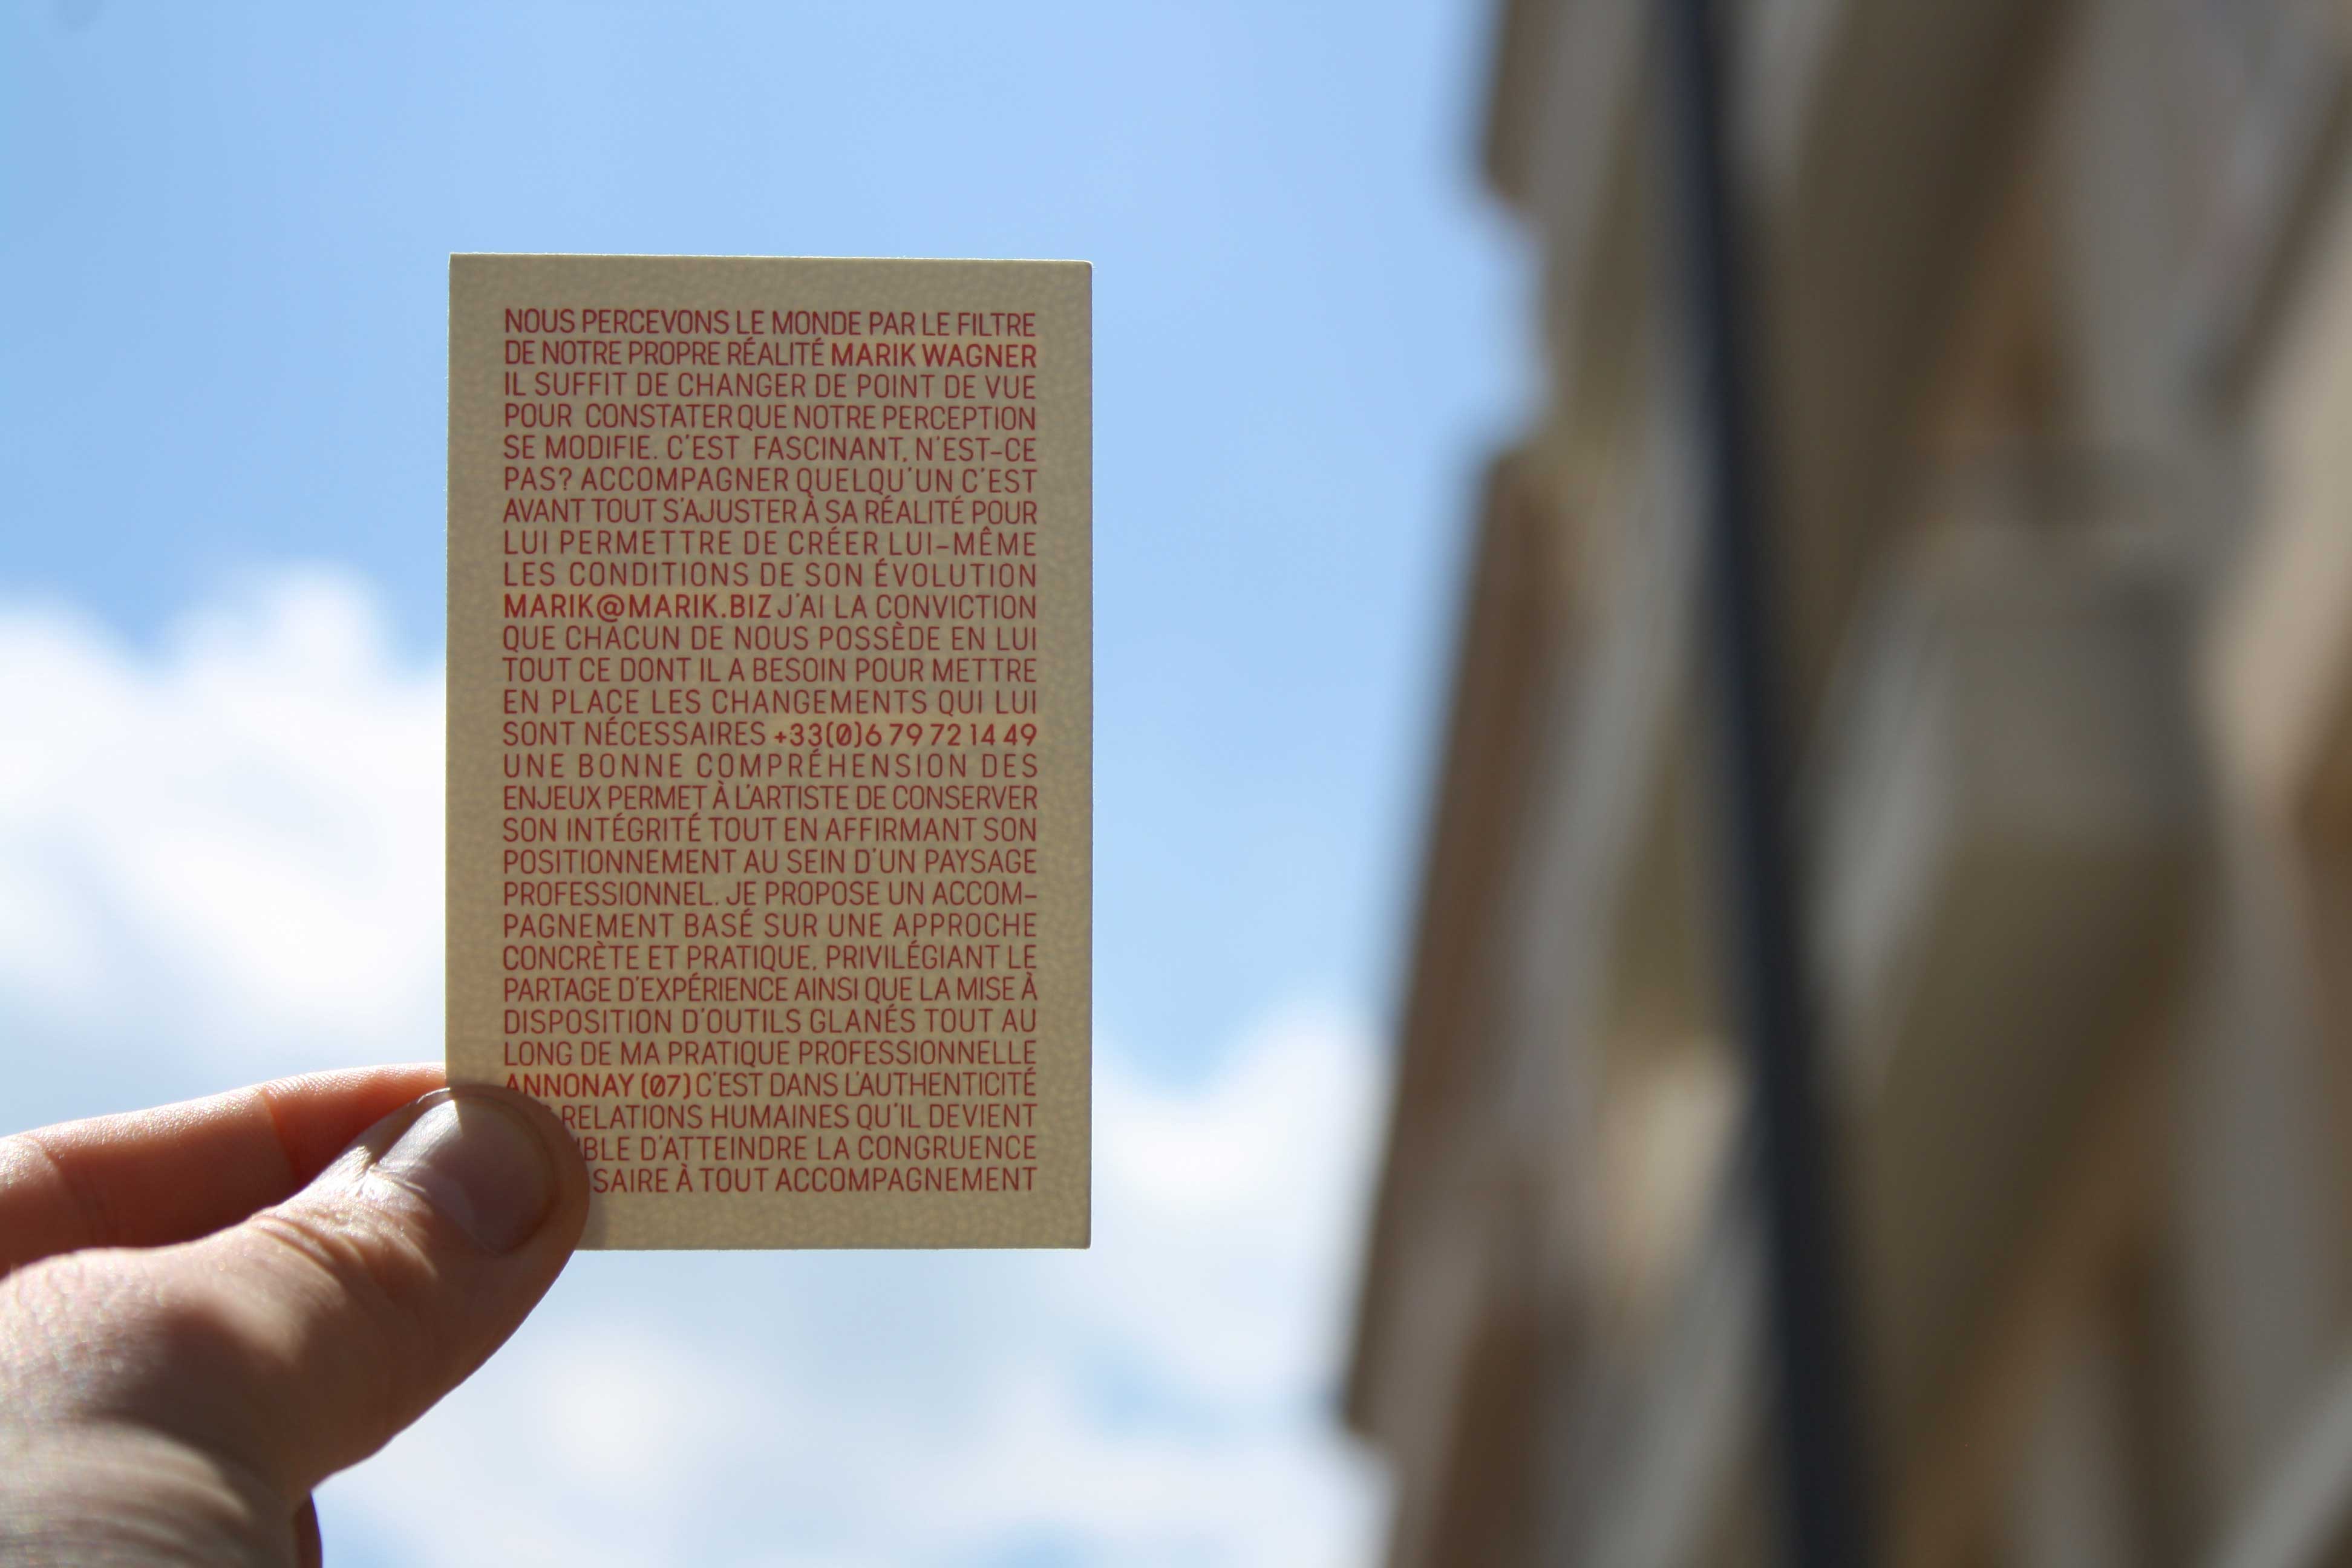 NOUS PERCEVONS LE MONDE PAR LE FILTRE
DE NOTRE PROPRE RÉALITÉ MARIK WAGNER
IL SUFFIT DE CHANGER DE POINT DE VUE
POUR CONSTATER QUE NOTRE PERCEPTION
SE MODIFIE. C'EST FASCINANT, N'EST-CE
PAS? ACCOMPAGNER QUELQU'UN C'EST
AVANT TOUT S'AJUSTER À SA RÉALITÉ POUR
LUI PERMETTRE DE CRÉER LUI-MÊME
LES CONDITIONS DE SON ÉVOLUTION
MARIK@MARIK.BIZ J'AI LA CONVICTION
QUE CHACUN DE NOUS POSSÈDE EN LUI
TOUT CE DONT IL A BESOIN POUR METTRE
EN PLACE LES CHANGEMENTS QUI LUI
SONT NÉCESSAIRES +33(0)6 79 72 14 49
UNE BONNE COMPRÉHENSION DES
ENJEUX PERMET À L'ARTISTE DE CONSERVER
SON INTÉGRITÉ TOUT EN AFFIRMANT SON
POSITIONNEMENT AU SEIN D'UN PAYSAGE
PROFESSIONNEL. JE PROPOSE UN ACCOM-
PAGNEMENT BASÉ SUR UNE APPROCHE
CONCRÈTE ET PRATIQUE, PRIVILÉGIANT LE
PARTAGE D'EXPÉRIENCE AINSI QUE LA MISE À
DISPOSITION D'OUTILS GLANÉS TOUT AU
LONG DE MA PRATIQUE PROFESSIONNELLE
ANNONAY (07) C'EST DANS L'AUTHENTICITÉ
RELATIONS HUMAINES QU'IL DEVIENT
D'ATTEINDRE LA CONGRUENCE
À TOUT ACCOMPAGNEMENT